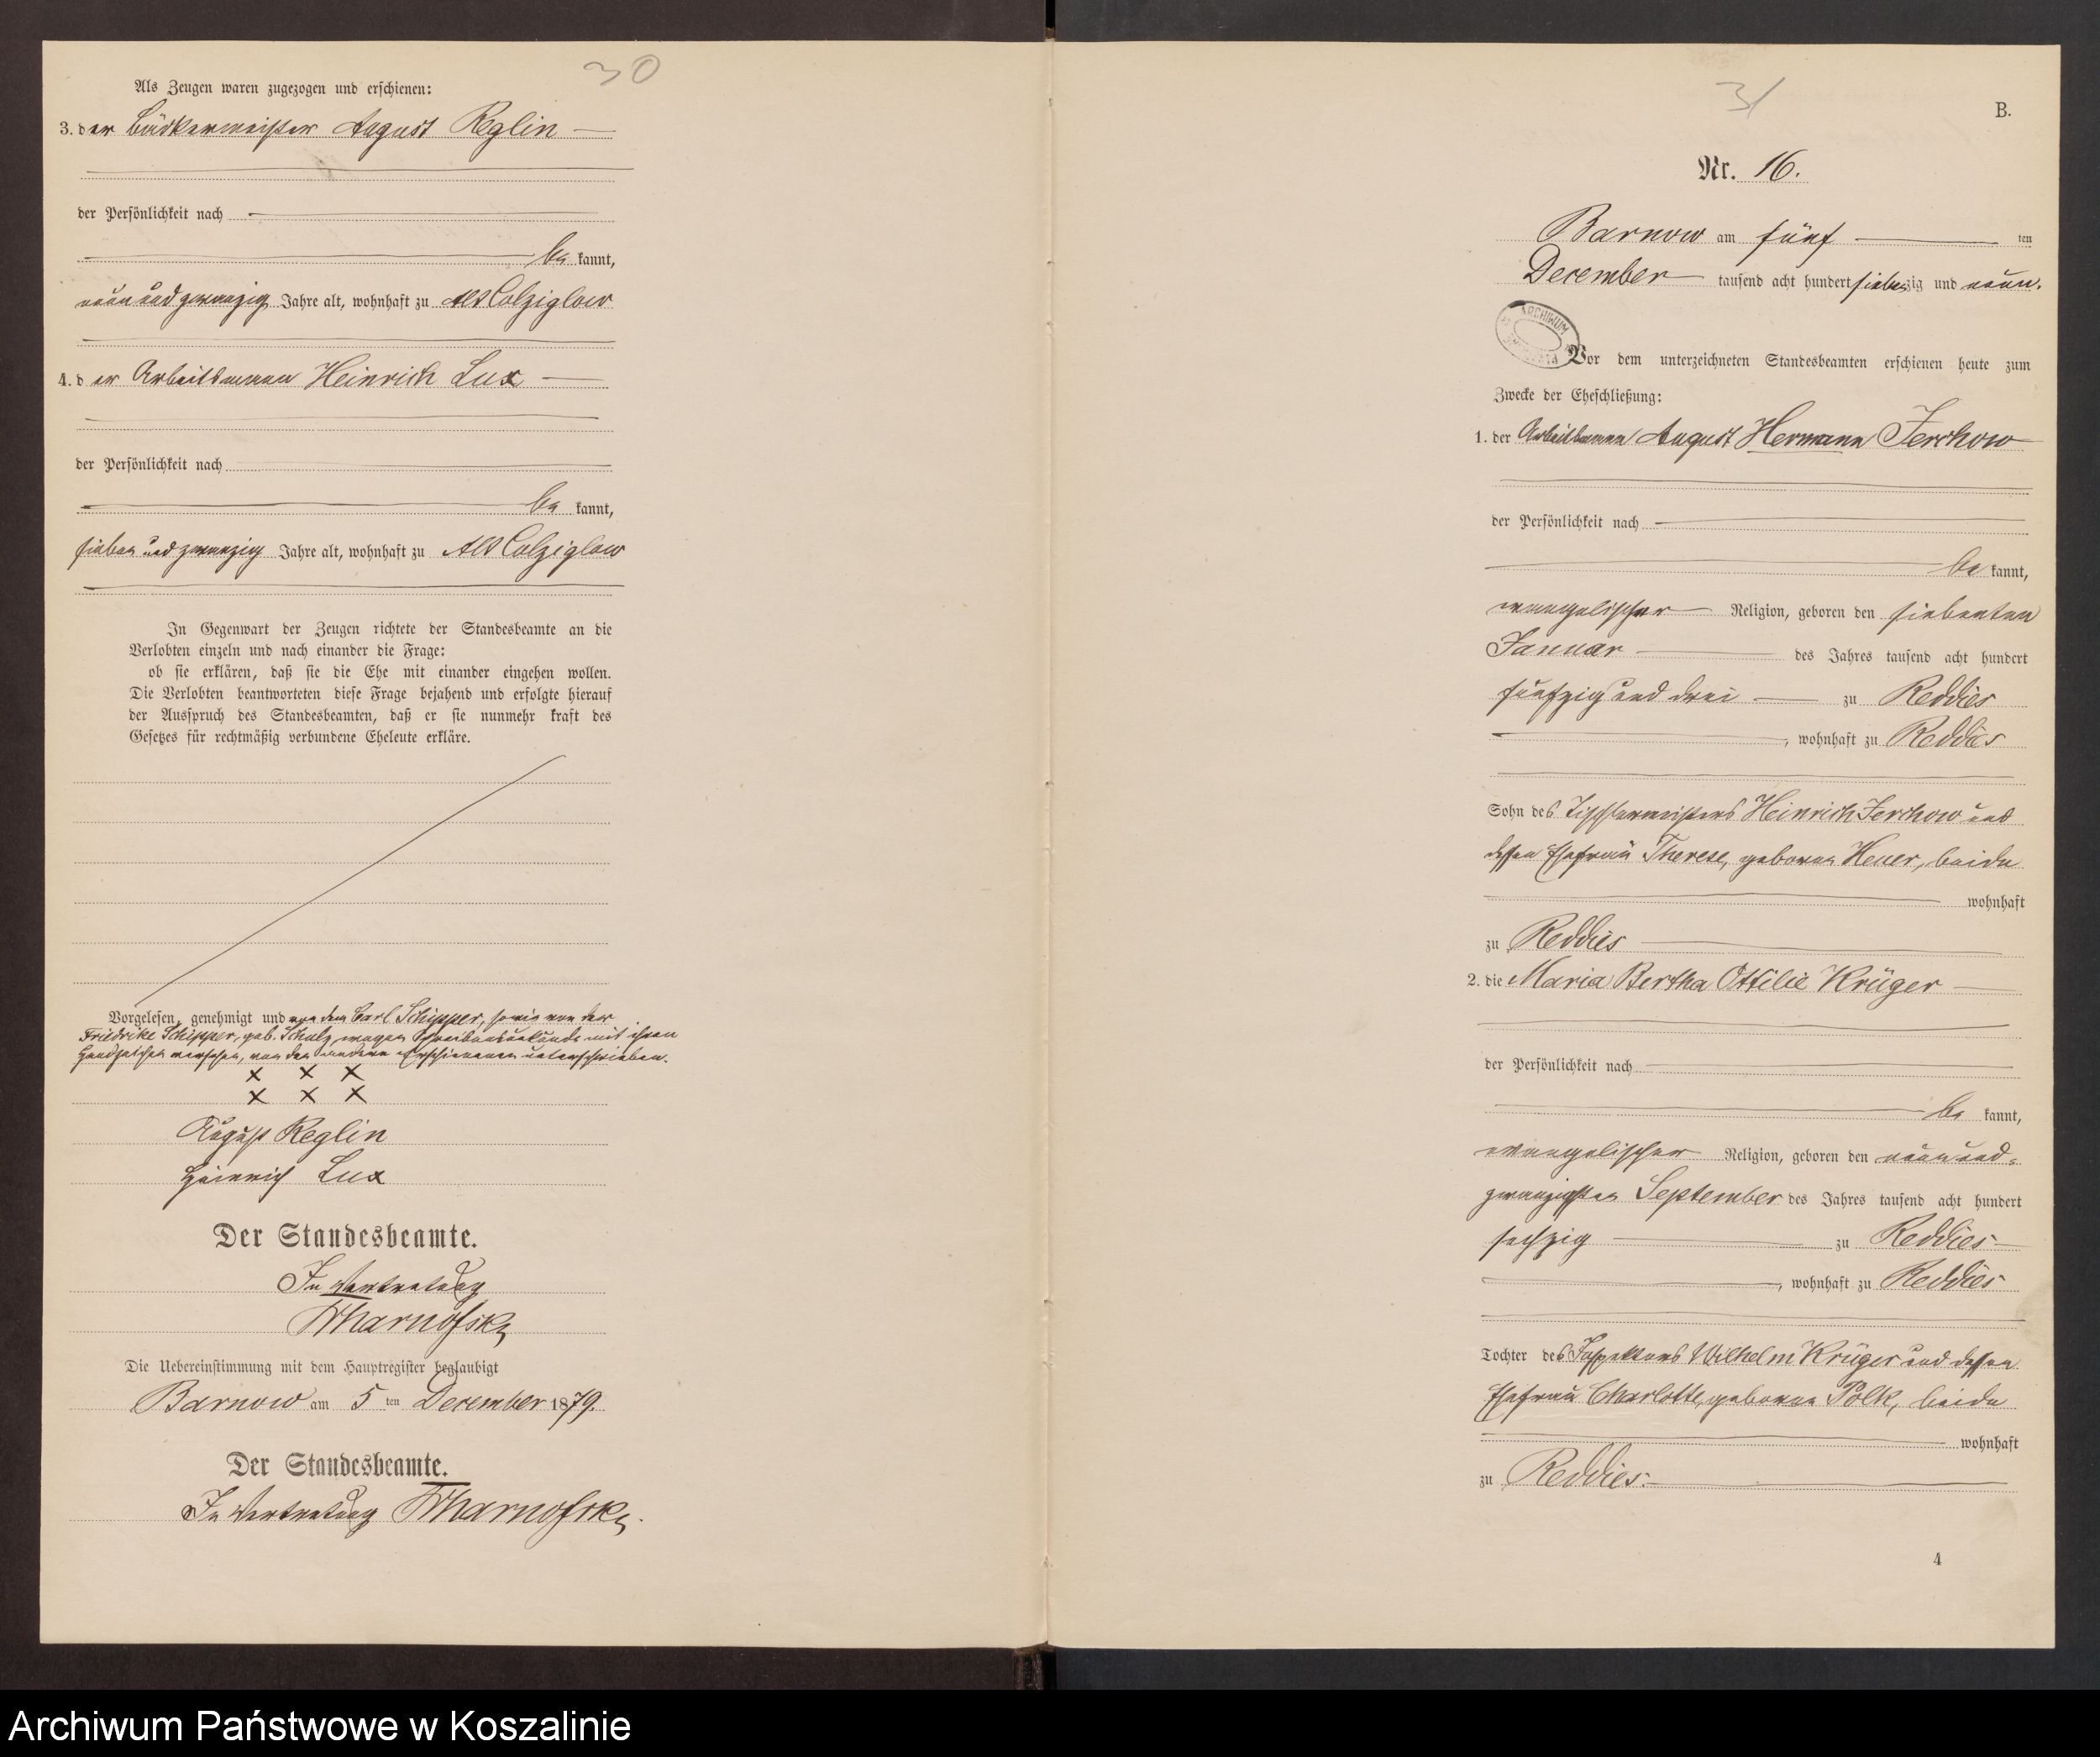 30
Als Zeugen waren zugezogen und erschienen:
3. der Bäckermeister August Reglin
der Persönlichkeit nach
be kannt,
neun und zwanzig Jahre alt, wohnhaft zu Alt Colziglow
4. der Arbeitsmann Heinrich Lux
der Persönlichkeit nach
be kannt,
sieben und zwanzig Jahre alt, wohnhaft zu Alt Colziglow
In Gegenwart der Zeugen richtete der Standesbeamte an die
Verlobten einzeln und nach einander die Frage:
ob sie erklären, daß sie die Ehe mit einander eingehen wollen.
Die Verlobten beantworteten diese Frage bejahend und erfolgte hierauf
der Ausspruch des Standesbeamten, daß er sie nunmehr kraft des
Gesetzes für rechtmäßig verbundene Eheleute erkläre.
Vorgelesen, genehmigt und von dem Carl Schipper, sowie von der
Friedrike Schipper, geb. Schulz wegen Schreibensunkunde mit ihren
Handzeichen versehen, von den anderen Erschienenen unterschrieben.
x x x
x x x
August Reglin
Heinrich Lux
Der Standesbeamte.
In Vertretung
Die Uebereinstimmung mit dem Hauptregister beglaubigt
Barnow am 5 ten December 1879.
Der Standesbeamte.
In Vertretung
31
B.
Nr. 16.
Barnow am fünf ten
December tausend acht hundert siebenzig und neun.
ARCHIWUM
Vor dem unterzeichneten Standesbeamten erschienen heute zum
Zwecke der Eheschließung:
1. der Arbeitsmann August Hermann Jerchow
der Persönlichkeit nach
be kannt,
evangelischer Religion, geboren den siebenten
Januar des Jahres tausend acht hundert
fünfzig und drei zu Reddies
, wohnhaft zu Reddies
Sohn des Tischlermeisters Heinrich Jerchow und
dessen Ehefrau Therese, geboren Heuer, beide
wohnhaft
zu Reddies
2. die Maria Bertha Ottilie Krüger
der Persönlichkeit nach
be kannt,
evangelischer Religion, geboren den neun und=
zwanzigsten September des Jahres tausend acht hundert
sechzig zu Reddies
, wohnhaft zu Reddies
Tochter des Inspektors Wilhelm Krüger und dessen
Ehefrau Charlotte, geborene Polk, beide
wohnhaft
zu Reddies.
4
Archiwum Państwowe w Koszalinie